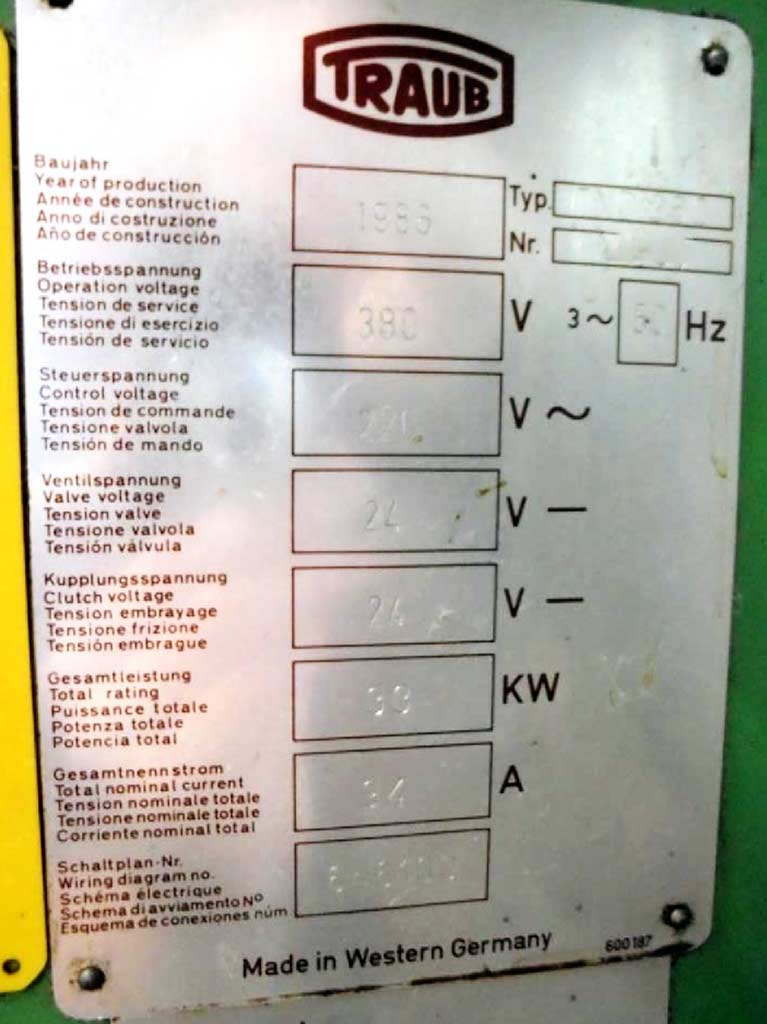 TRAUB
Baujahr
Year of production
Année de construction
Anno di costruzione
Año de construcción
1986
Typ.
Nr.
Betriebsspannung
Operation voltage
Tension de service
Tensione di esercizio
Tensión de servicio
380 V 3~ Hz
Steuerspannung
Control voltage
Tension de commande
Tensione valvola
Tensión de mando
220 V ~
Ventilspannung
Valve voltage
Tension valve
Tensione valvola
Tensión válvula
24 V —
Kupplungsspannung
Clutch voltage
Tension embrayage
Tensione frizione
Tensión embrague
24 V —
Gesamtleistung
Total rating
Puissance totale
Potenza totale
Potencia total
33 KW
Gesamtnennstrom
Total nominal current
Tension nominale totale
Tensione nominale totale
Corriente nominal total
34 A
Schaltplan-Nr.
Wiring diagram no.
Schéma électrique
Schema di avviamento Nº
Esquema de conexiones núm
Made in Western Germany
600187